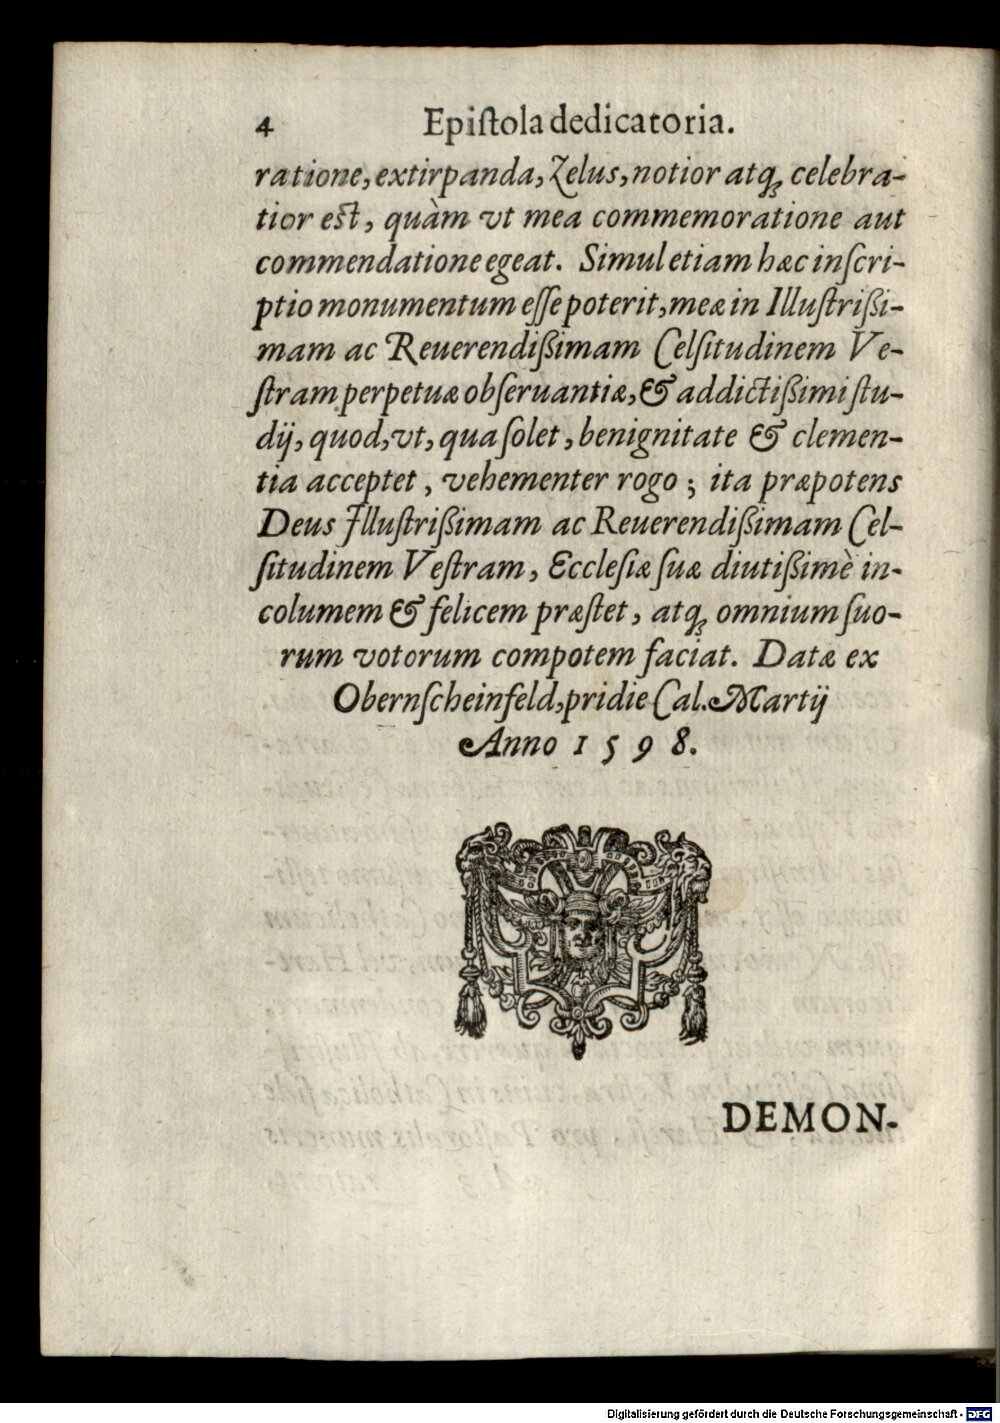 4 Epiſtola dedicatoria.
ratione, extirpanda, Zelus, notior atq́; celebra-
tior est, quàm vt mea commemoratione aut
commendatione egeat. Simul etiam hæc inſcri-
ptio monumentum eſſe poterit, meæ in Illuſtrißi-
mam ac Reuerendißimam Celſitudinem Ve-
ſtram perpetuæ obſeruantiæ, & addictißimi ſtu-
dij, quod, vt, qua ſolet, benignitate & clemen-
tia acceptet, vehementer rogo; ita præpotens
Deus Illuſtrißimam ac Reuerendißimam Cel-
ſitudinem Veſtram, Eccleſiæ ſuæ diutißimè in-
columem & felicem præſtet, atq; omnium ſuo-
rum votorum compotem faciat. Datæ ex
Obernſcheinfeld, pridie Cal. Martij
Anno 1598.
DEMON-
Digitalisierung gefördert durch die Deutsche Forschungsgemeinschaft - DFG